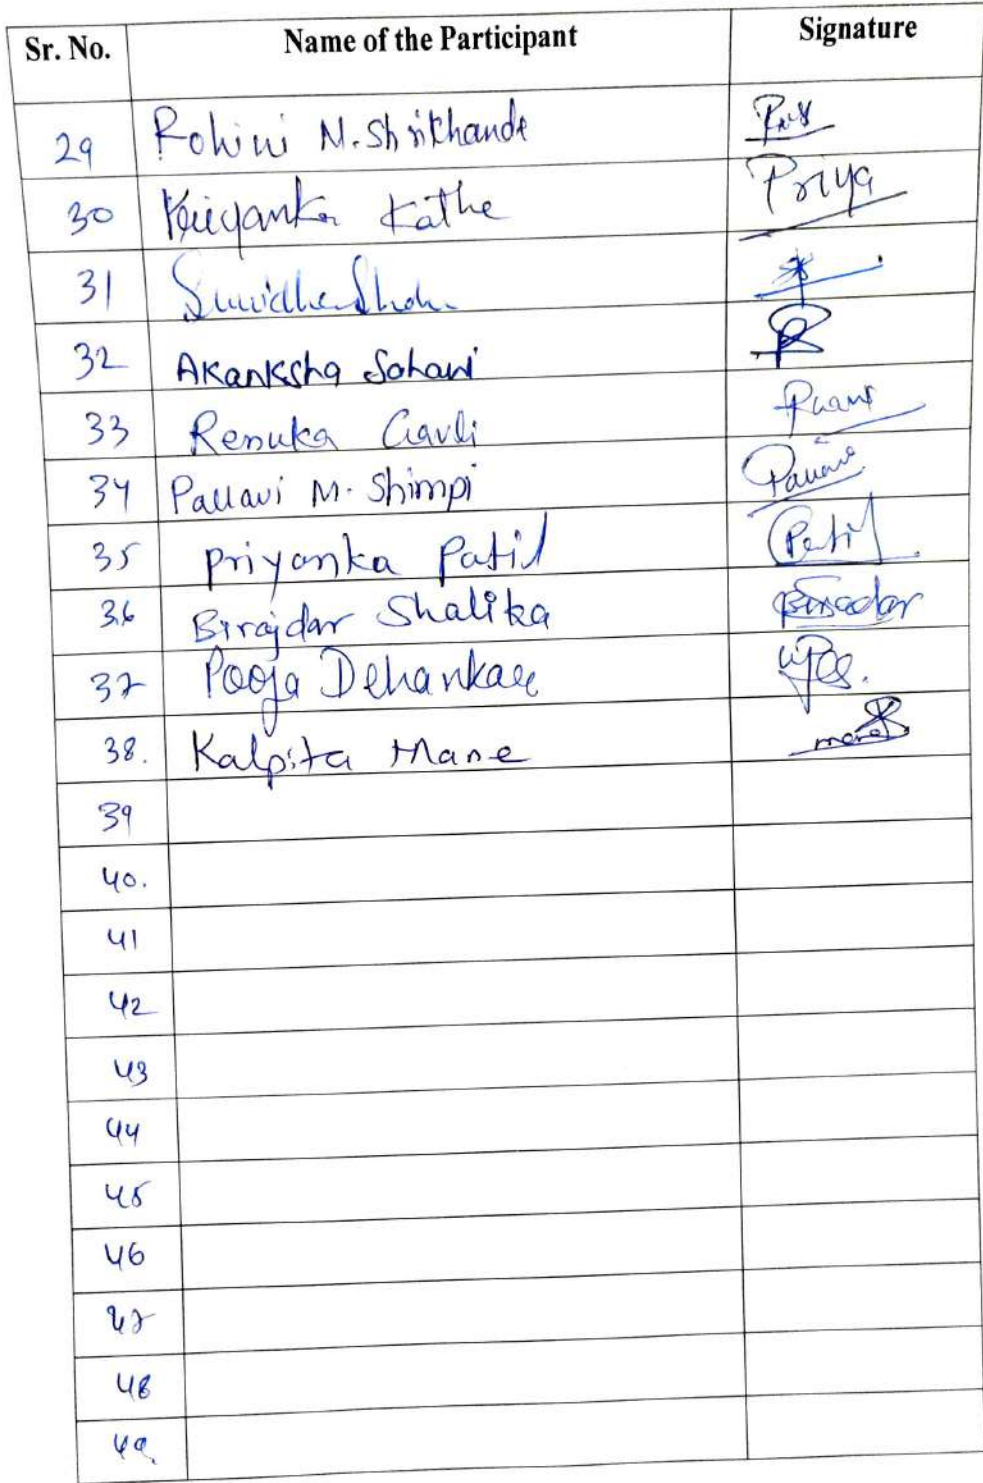 Sr. No. Name of the Participant Signature
29 Rohini M. Shrikhande
30 Priyanka Kathe Priya
31
32 Akanksha Sohani
33 Renuka Gavli
34 Pallavi M. Shimpi Pallavi
35 Priyanka Patil Patil
36 Birajdar Shalika Biradar
37 Pooja Dehankar
38. Kalpita Mane mane
39
40.
41
42
43
44
45
46
47
48
49.